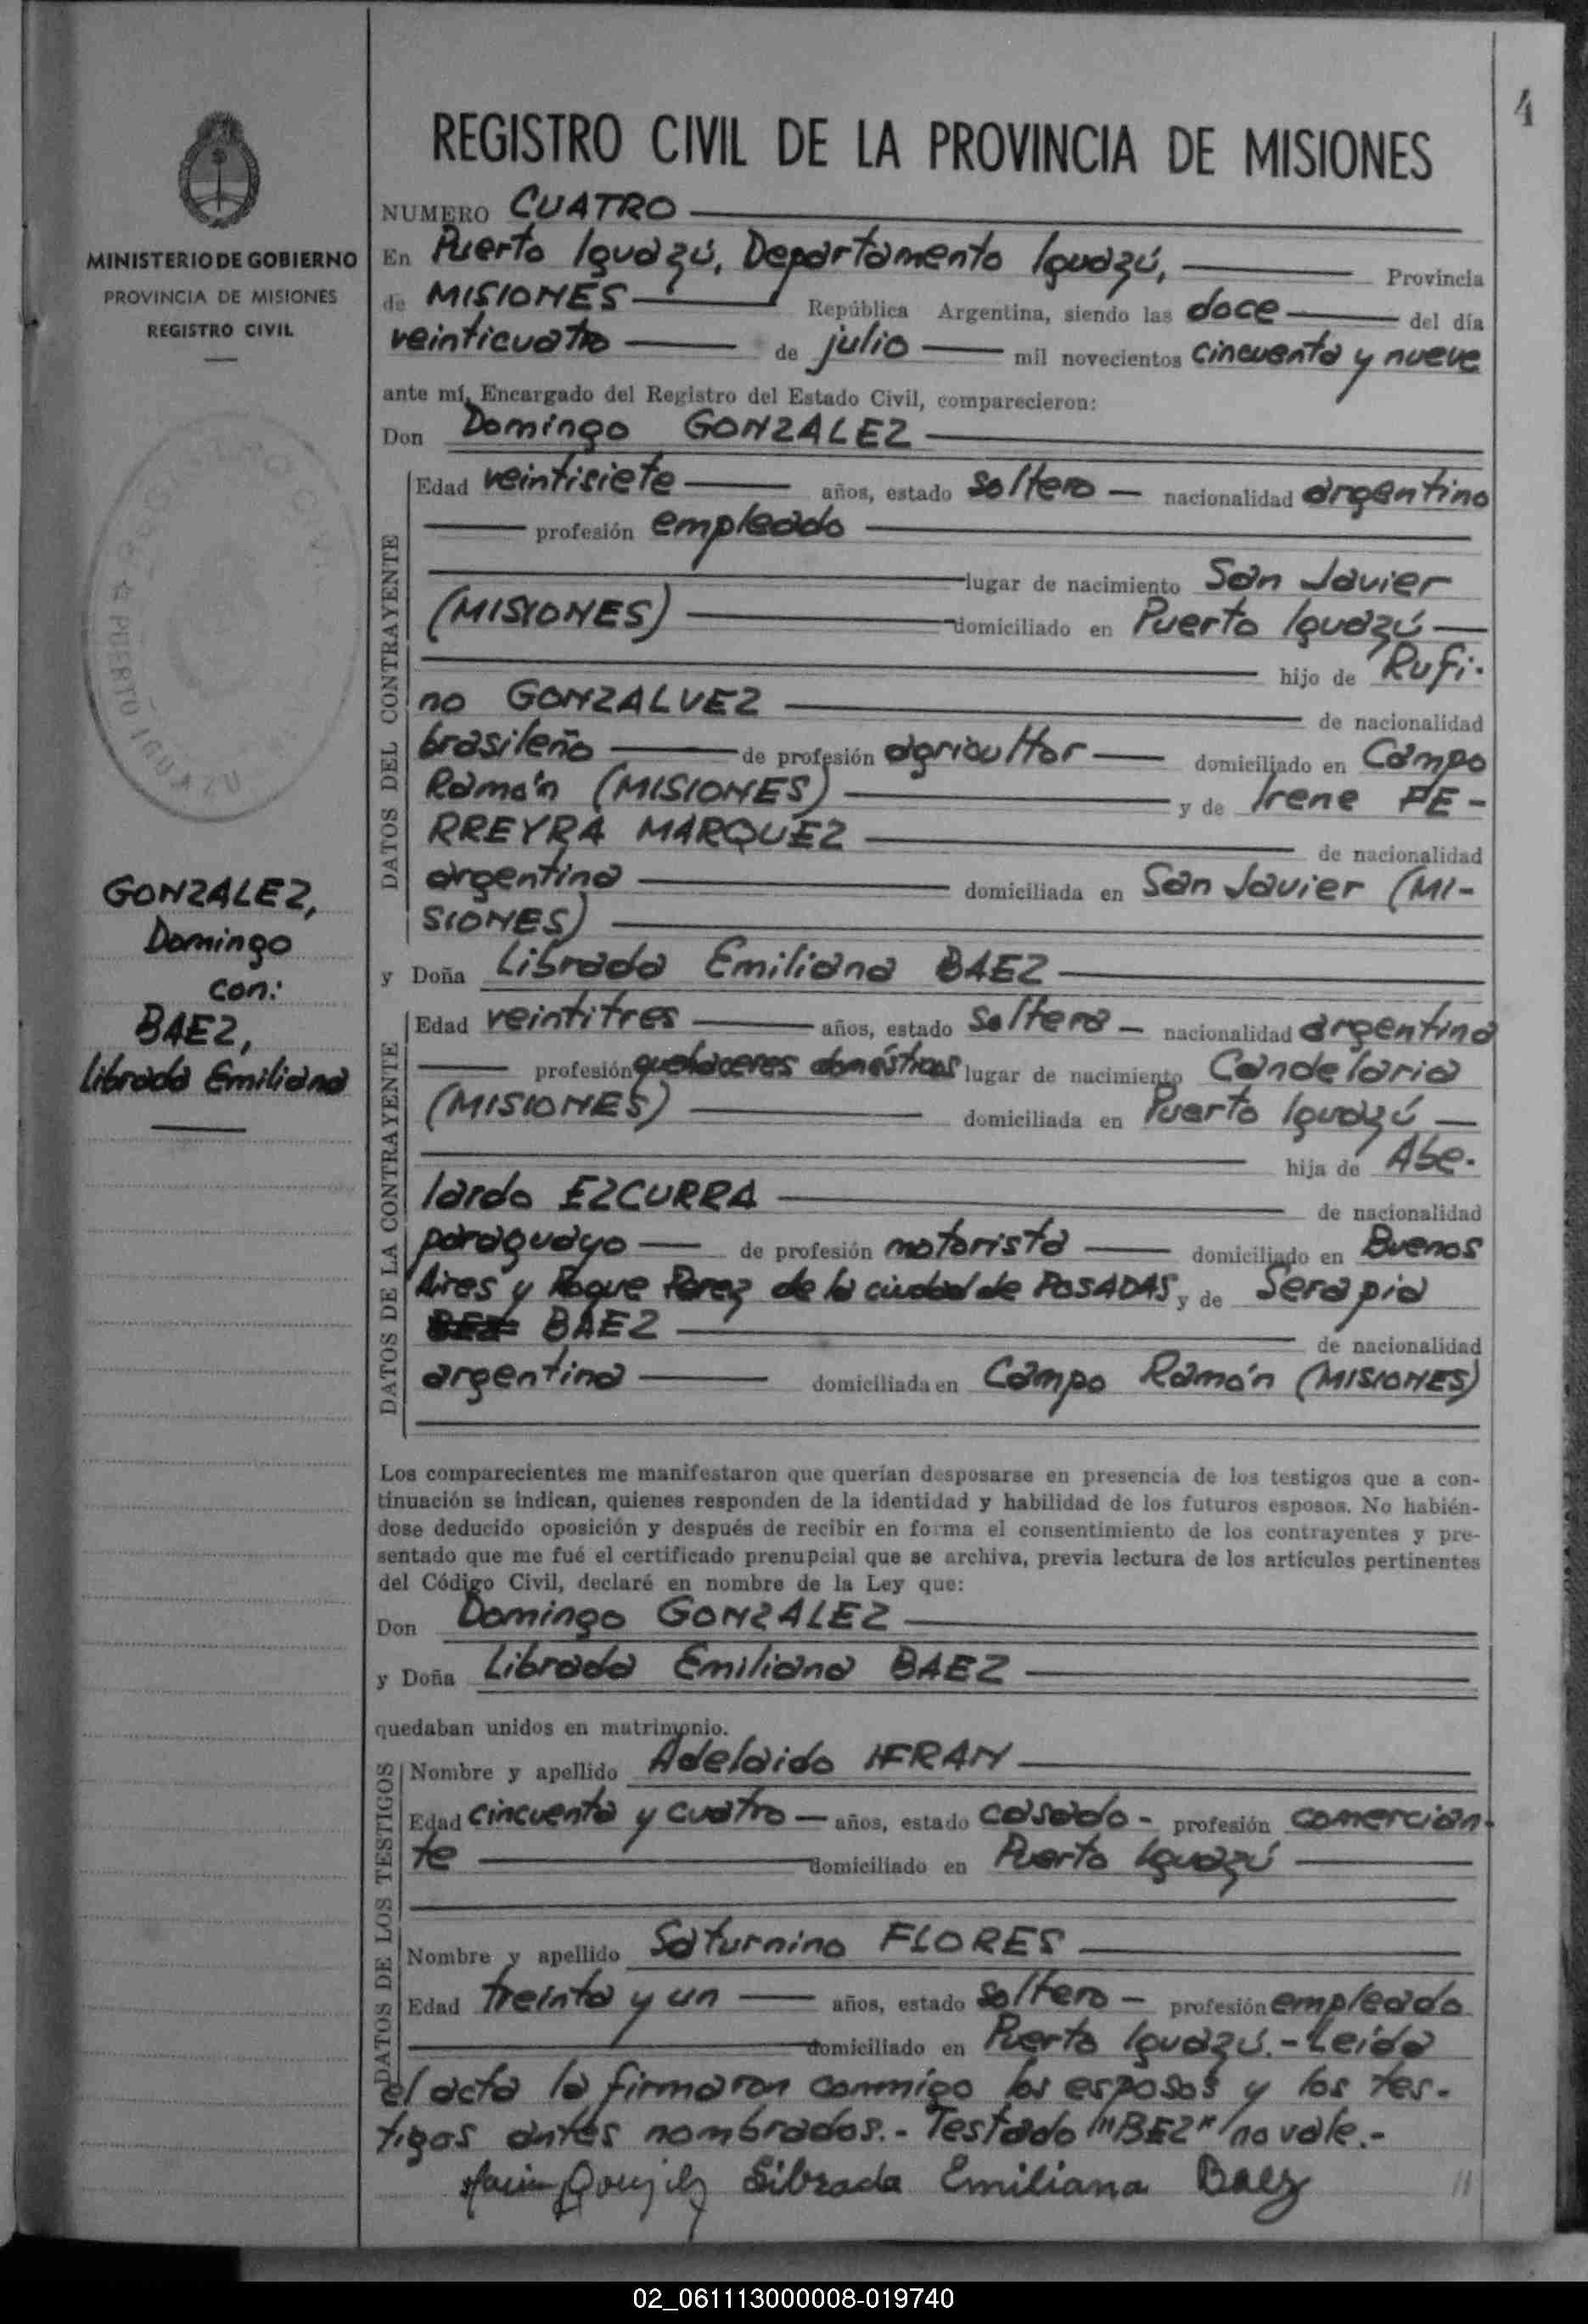 4
REGISTRO CIVIL DE LA PROVINCIA DE MISIONES
MINISTERIO DE GOBIERNO
PROVINCIA DE MISIONES
REGISTRO CIVIL
PUERTO IGUAZU
GONZALEZ,
Domingo
con:
BAEZ,
Librada Emiliana
NUMERO CUATRO
En Puerto Iguazú, Departamento Iguazú, Provincia
de MISIONES República Argentina, siendo las doce del día
veinticuatro de julio mil novecientos cincuenta y nueve
ante mí, Encargado del Registro del Estado Civil, comparecieron:
Don Domingo GONZALEZ
DATOS DEL CONTRAYENTE
Edad veintisiete años, estado soltero nacionalidad argentino
profesión empleado
lugar de nacimiento San Javier
(MISIONES) domiciliado en Puerto Iguazú
hijo de Rufi-
no GONZALVEZ de nacionalidad
brasileño de profesión agricultor domiciliado en Campo
Ramón (MISIONES) y de Irene FE-
RREYRA MARQUEZ de nacionalidad
argentina domiciliada en San Javier (MI-
SIONES)
y Doña Librada Emiliana BAEZ
DATOS DE LA CONTRAYENTE
Edad veintitres años, estado soltera nacionalidad argentina
profesión quehaceres domésticos lugar de nacimiento Candelaria
(MISIONES) domiciliada en Puerto Iguazú
hija de Abe-
lardo EZCURRA de nacionalidad
paraguayo de profesión motorista domiciliado en Buenos
Aires y Roque Perez de la ciudad de POSADAS, y de Serapia
BEZ BAEZ de nacionalidad
argentina domiciliada en Campo Ramón (MISIONES)
Los comparecientes me manifestaron que querían desposarse en presencia de los testigos que a con-
tinuación se indican, quienes responden de la identidad y habilidad de los futuros esposos. No habién-
dose deducido oposición y después de recibir en forma el consentimiento de los contrayentes y pre-
sentado que me fué el certificado prenupcial que se archiva, previa lectura de los artículos pertinentes
del Código Civil, declaré en nombre de la Ley que:
Don Domingo GONZALEZ
y Doña Librada Emiliana BAEZ
quedaban unidos en matrimonio.
DATOS DE LOS TESTIGOS
Nombre y apellido Adelaido IFRAN
Edad cincuenta y cuatro años, estado casado - profesión comercian-
te domiciliado en Puerto Iguazú
Nombre y apellido Saturnino FLORES
Edad treinta y un años, estado soltero - profesión empleado
domiciliado en Puerto Iguazú.- Leída
el acta la firmaron conmigo los esposos y los tes-
tigos antes nombrados.- Testado "BEZ" no vale.-
Librada Emiliana Baez
02_061113000008-019740